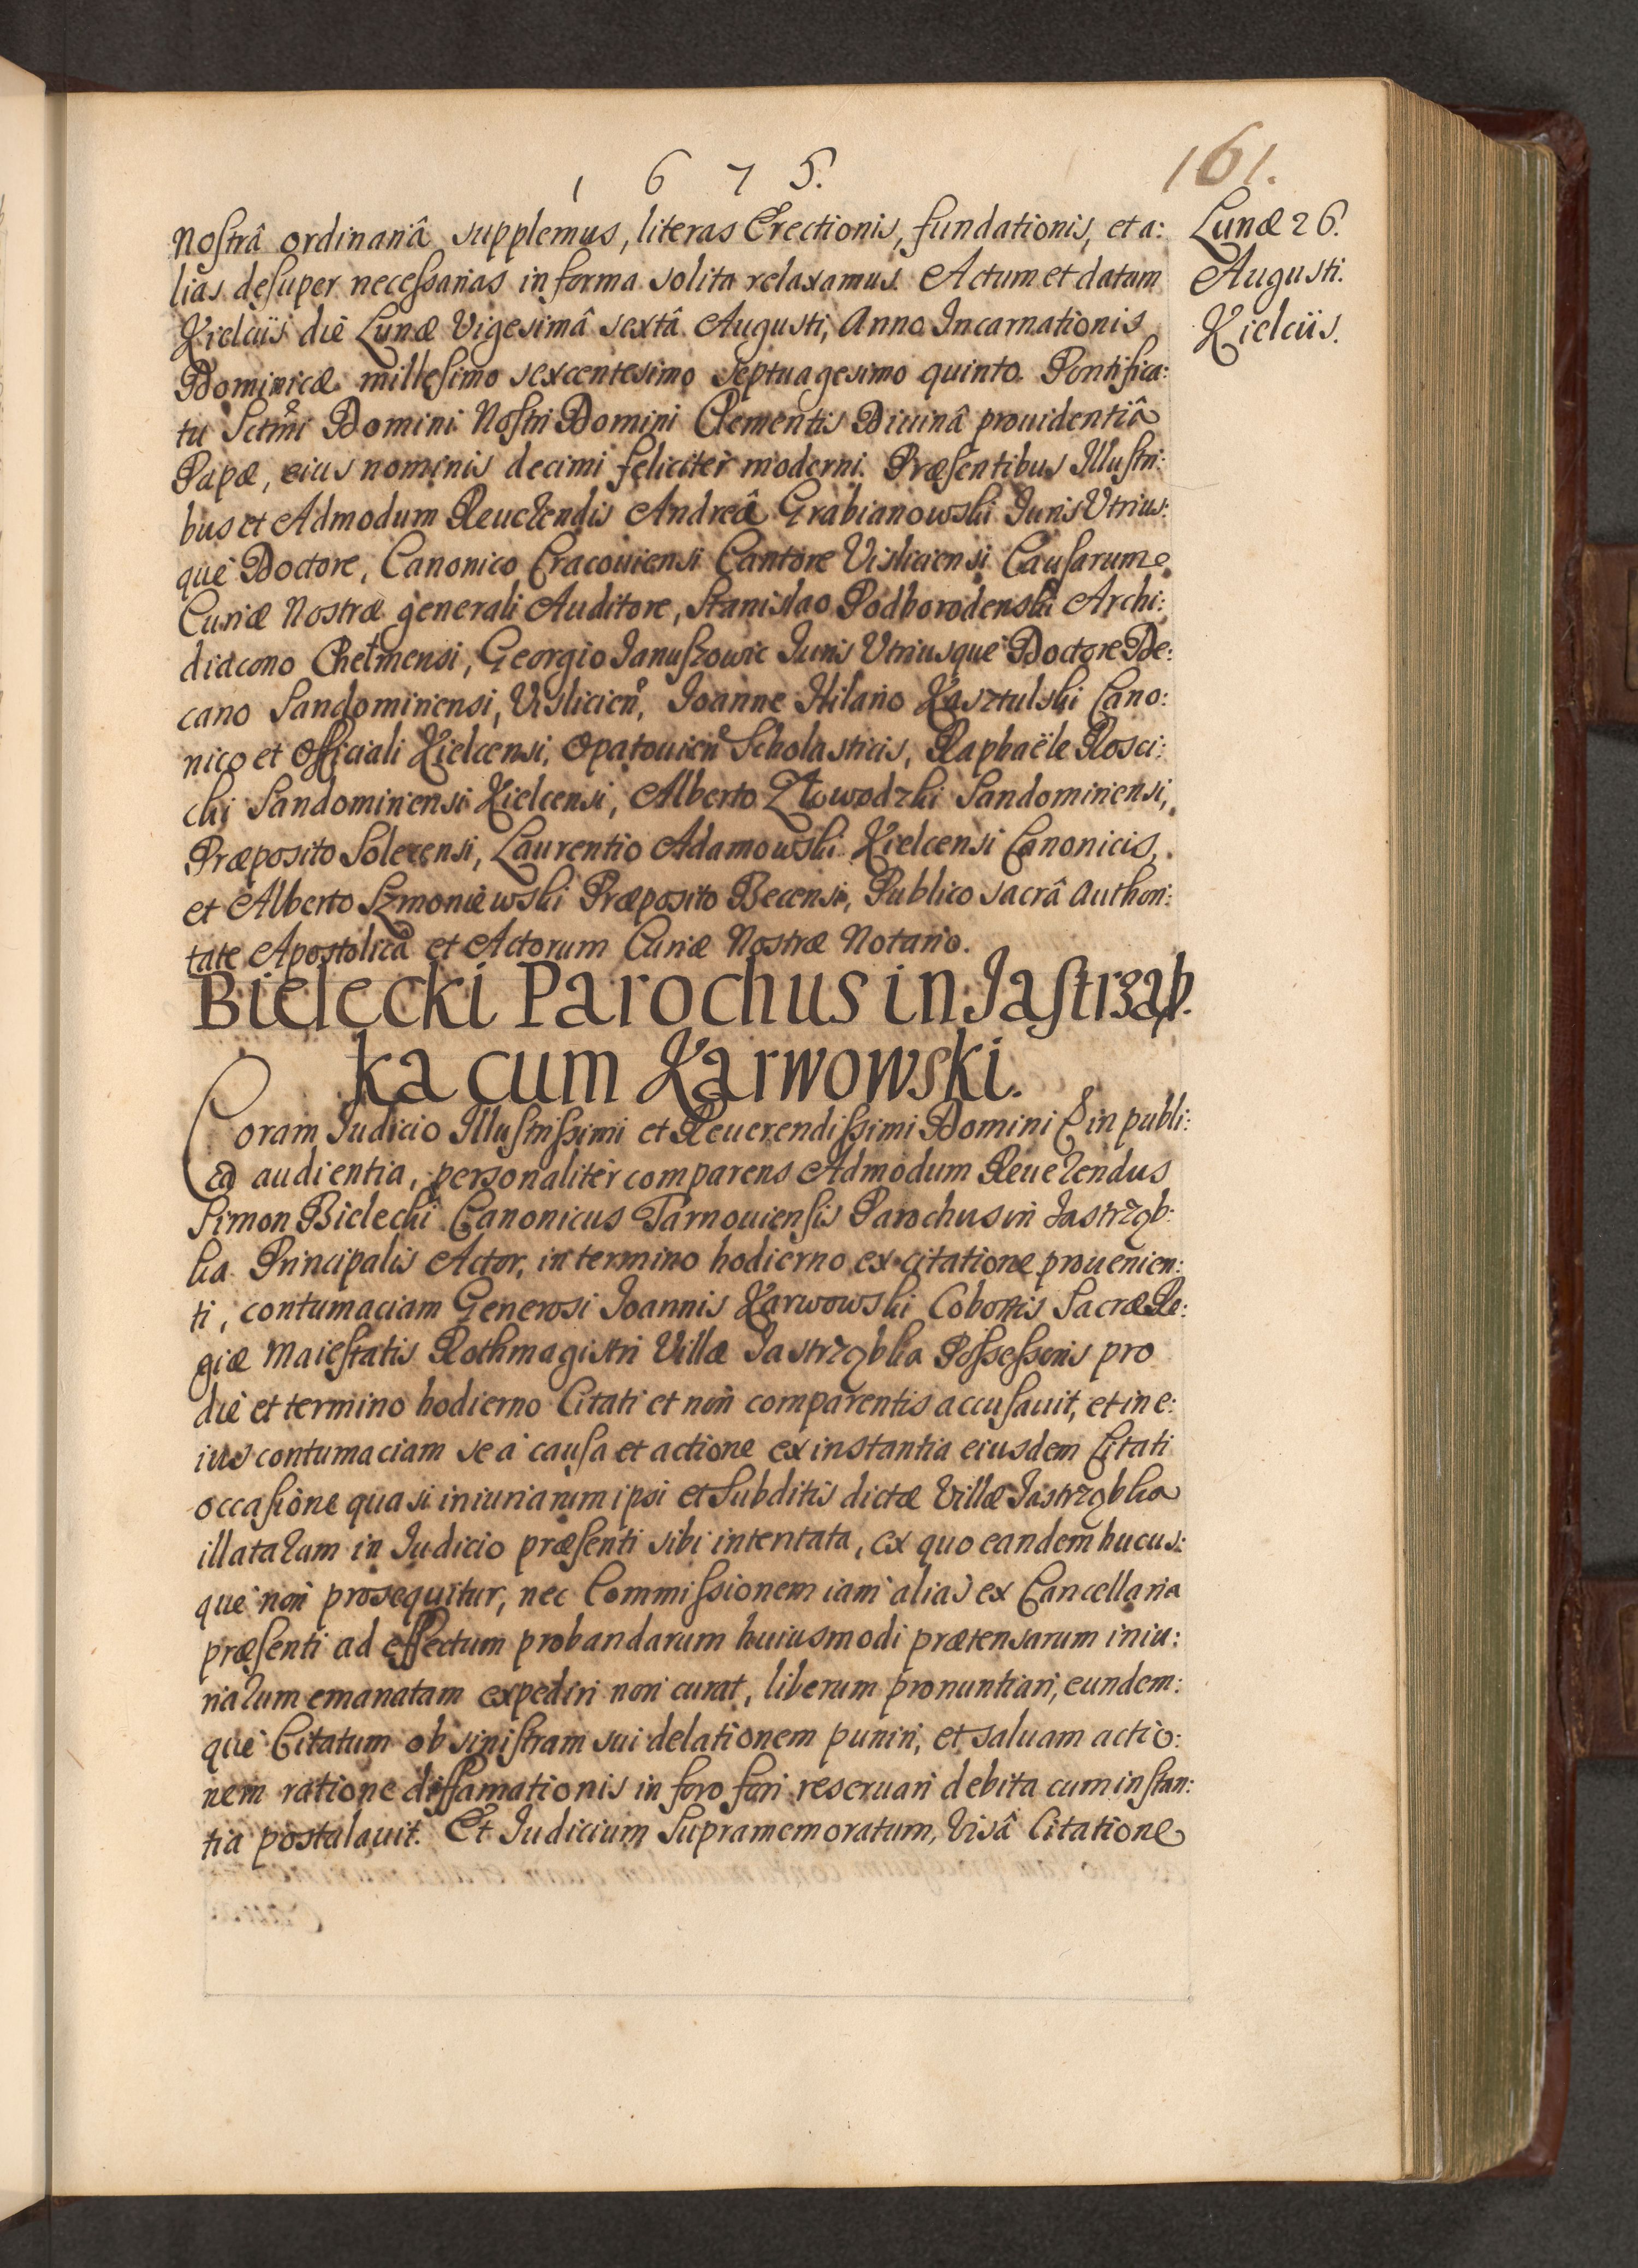 1675.
161.
Lunæ 26.
Augusti.
Kielciis.
Nostrâ ordinariâ supplemus, literas Erectionis, fundationis, et a:
lias desuper necessarias in forma solita relaxamus. Actum et datum
Kielciis die Lunæ Vigesimâ sextâ Augusti, Anno Incarnationis
Dominicæ millesimo sexcentesimo septuagesimo quinto. Pontifica:
tu Sctmi Domini Nostri Domini Clementis Diuinâ prouidentiâ
Papæ, eius nominis decimi feliciter moderni. Præsentibus Illustri:
bus et Admodum Reuerendis Andreâ Grabianowski Iuris Vtrius:
que Doctore, Canonico Cracouiensi Cantore Visliciensi Causarum
Curiæ Nostræ generali Auditore, Stanislao Podhorodenski Archi:
diacono Chełmensi, Georgio Januszowic Iuris Vtriusque Doctore De:
cano Sandomiriensi, Vislicien, Joanne Hilario Kasztulski Cano:
nico et Officiali Kielcensi, Opatouien Scholasticis, Raphaële Rosci:
cki Sandomiriensi Kielcensi, Alberto Złowodzki Sandomiriensi,
Præposito Solecensi, Laurentio Adamowski Kielcensi Canonicis,
et Alberto Szmoniewski Præposito Becensi, Publico sacrâ Authori:
tate Apostolica et Actorum Curiæ Nostræ Notario.
Bielecki Parochus in Jastrząb.
ka cum Karwowski.
Coram Iudicio Illustrissimi et Reuerendissimi Domini E in publi:
ca audientia, personaliter comparens Admodum Reuerendus
Simon Bielecki Canonicus Tarnouiensis Parochus in Jastrząb:
ka Principalis Actor, in termino hodierno ex citatione prouenien:
ti, contumaciam Generosi Joannis Karwowski Cohortis Sacræ Re:
giæ Maiestatis Rothmagistri Villæ Jastrząbka Possessoris pro
die et termino hodierno Citati et non comparentis accusauit, et in e:
ius contumaciam se a causa et actione ex instantia eiusdem Citati
occasione quasi iniuriarum ipsi et Subditis dictæ Villæ Jastrząbka
illatarum in Iudicio præsenti sibi intentata, ex quo eandem hucus:
que non prosequitur, nec Commissionem iam alias ex Cancellaria
præsenti ad effectum probandarum huiusmodi prætensarum iniu:
riarum emanatam expediri non curat, liberum pronuntiari, eundem:
que Citatum ob sinistram sui delationem puniri, et saluam actio:
nem ratione diffamationis in foro fori reseruari debita cum instan:
tia postulauit. Et Iudicium Supramemoratum, Visâ Citatione